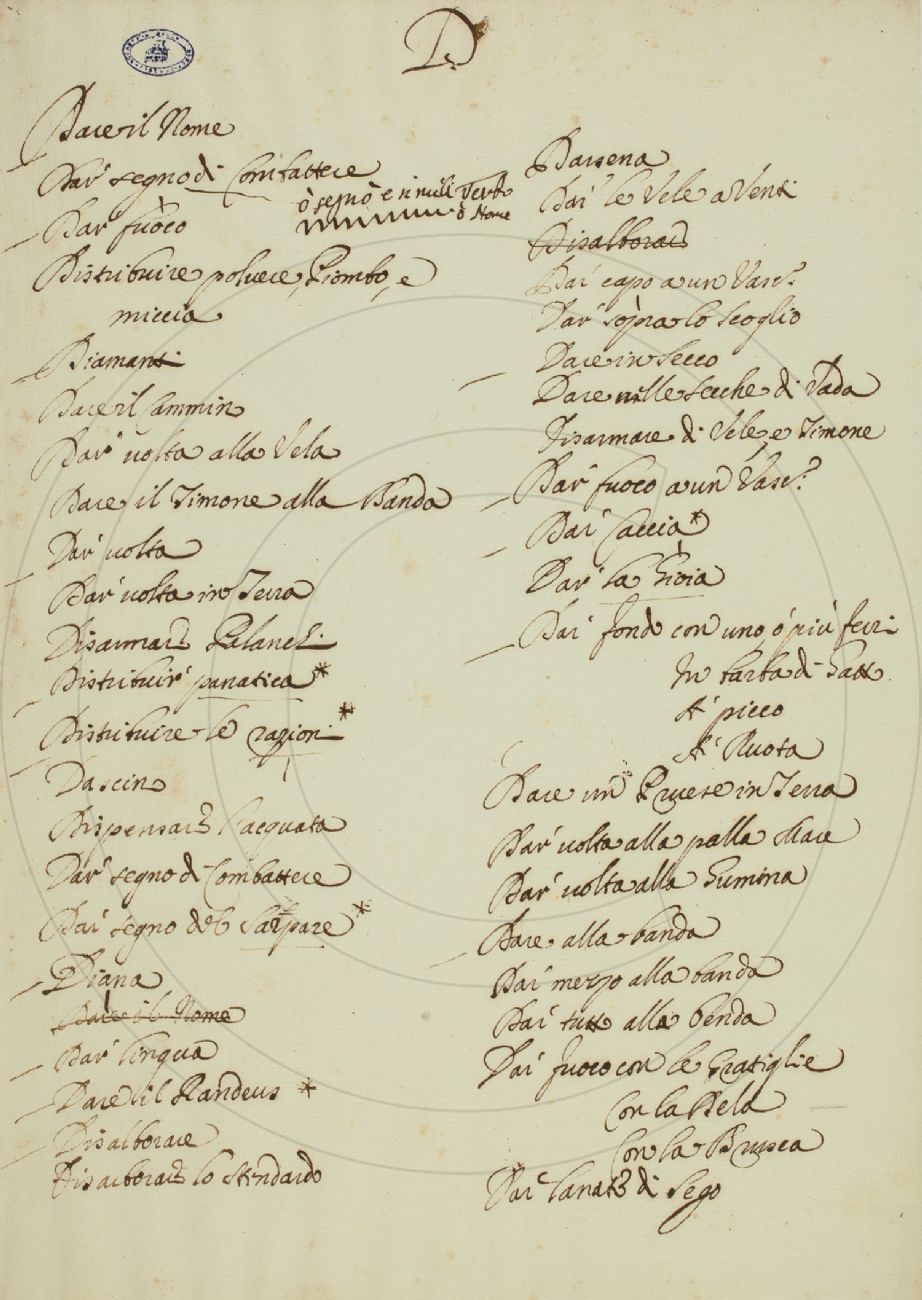 D
Dare il Nome
Dar' segno di Combattere
ò segno e in
ò Nome
Dar fuoco
Distribuire polvere, Piombo, e
miccia
Diamanti
Dare il Cammin
Dar' volta alla Vela
Dare il Timone alla Banda
Dar' volta
Dar' volta in Terra
Disarmare Palanchi
Distribuir' panatica *
Distribuire le razioni *
Dascino
Dispensare l'acquata
Dar' segno di Combattere
Dar segno del Sarpare *
Diana
Dare il Nome
Dar' lingua
Dare il Randeus *
Disalborare
Disarborare lo Stendardo
Darsena
Dar le Vele a Venti
Disalborare
Dar capo a un Vasc.º
Dar' sopra lo scoglio
Dare in secco
Dare nelle secche di Vada
Disarmare di Vele, e Timone
Dar' fuoco a un Vasc.º
Dar Caccia *
Dar' la Gioia
Dar fondo con uno, ò più ferri
In barba di Gatt
A' picco
A' Ruota
Dare un Provese in Terra
Dar' volta alla palla Mare
Dar' volta alla Gumina
Dare alla banda
Dar mezzo alla banda
Dar tutt alla benda
Dar fuoco con le Gratiglie
Con la Pela
Con la Brusca
Dar lanate di Sego